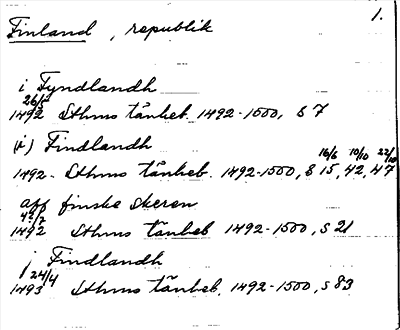 1.
Finland, republik
i Fyndlandh
26/5
1492 Sthms tänkeb. 1492-1500, s 7
(i) Findlandh
16/6 10/10 22/10
1492. Sthms tänkeb. 1492-1500, s 15, 42, 47
aff finske skeren
1492 Sthms tänkeb 1492-1500, s 21
j Findlandh
24/4
1493 Sthms tänkeb. 1492-1500, s 83